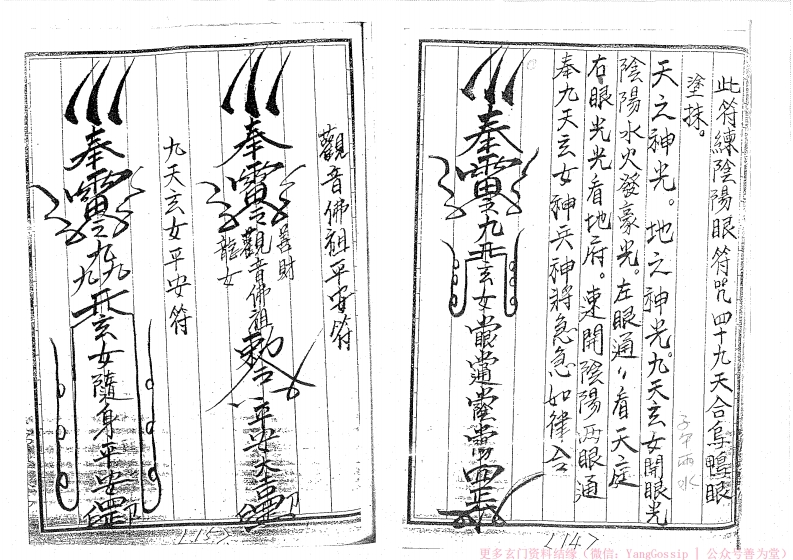 此符練陰陽眼符咒四十九天合烏鴨眼
塗抹。
子午雨水
天之神光。地之神光。九天玄女開眼光
陰陽水火發豪光。左眼通〃看天庭
右眼光光看地府。速開陰陽兩眼通
奉九天玄女神兵神將急急如律令
奉 九天玄女
147
觀音佛祖平安符
善財
奉 觀音佛祖 敕令 平安
龍女
九天玄女平安符
奉 玄女隨身平安
157
更多玄门资料结缘（微信：YangGossip | 公众号善为堂）